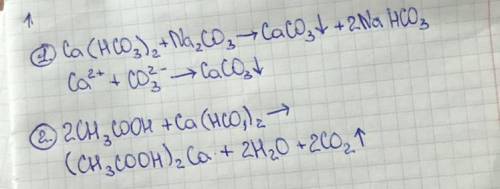 1.
① Ca(HCO₃)₂ + Na₂CO₃ → CaCO₃↓ + 2NaHCO₃
Ca²⁺ + CO₃²⁻ → CaCO₃↓
② 2CH₃COOH + Ca(HCO₃)₂ →
(CH₃COOH)₂Ca + 2H₂O + 2CO₂↑